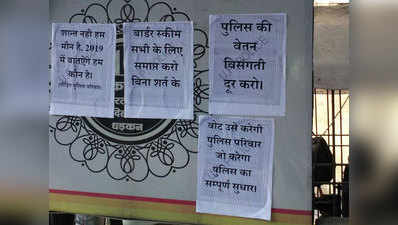 शान्त नही हम
मौन है, 2019
में बताएंगे हम
कौन है।
बार्डर स्कीम
सभी के लिए
समाप्त करो
बिना शर्त के
पुलिस की
वेतन
विसंगती
दूर करो।
वोट उसे करेगी
पुलिस परिवार
जो करेगा
पुलिस का
सम्पूर्ण सुधार।
धड़कन